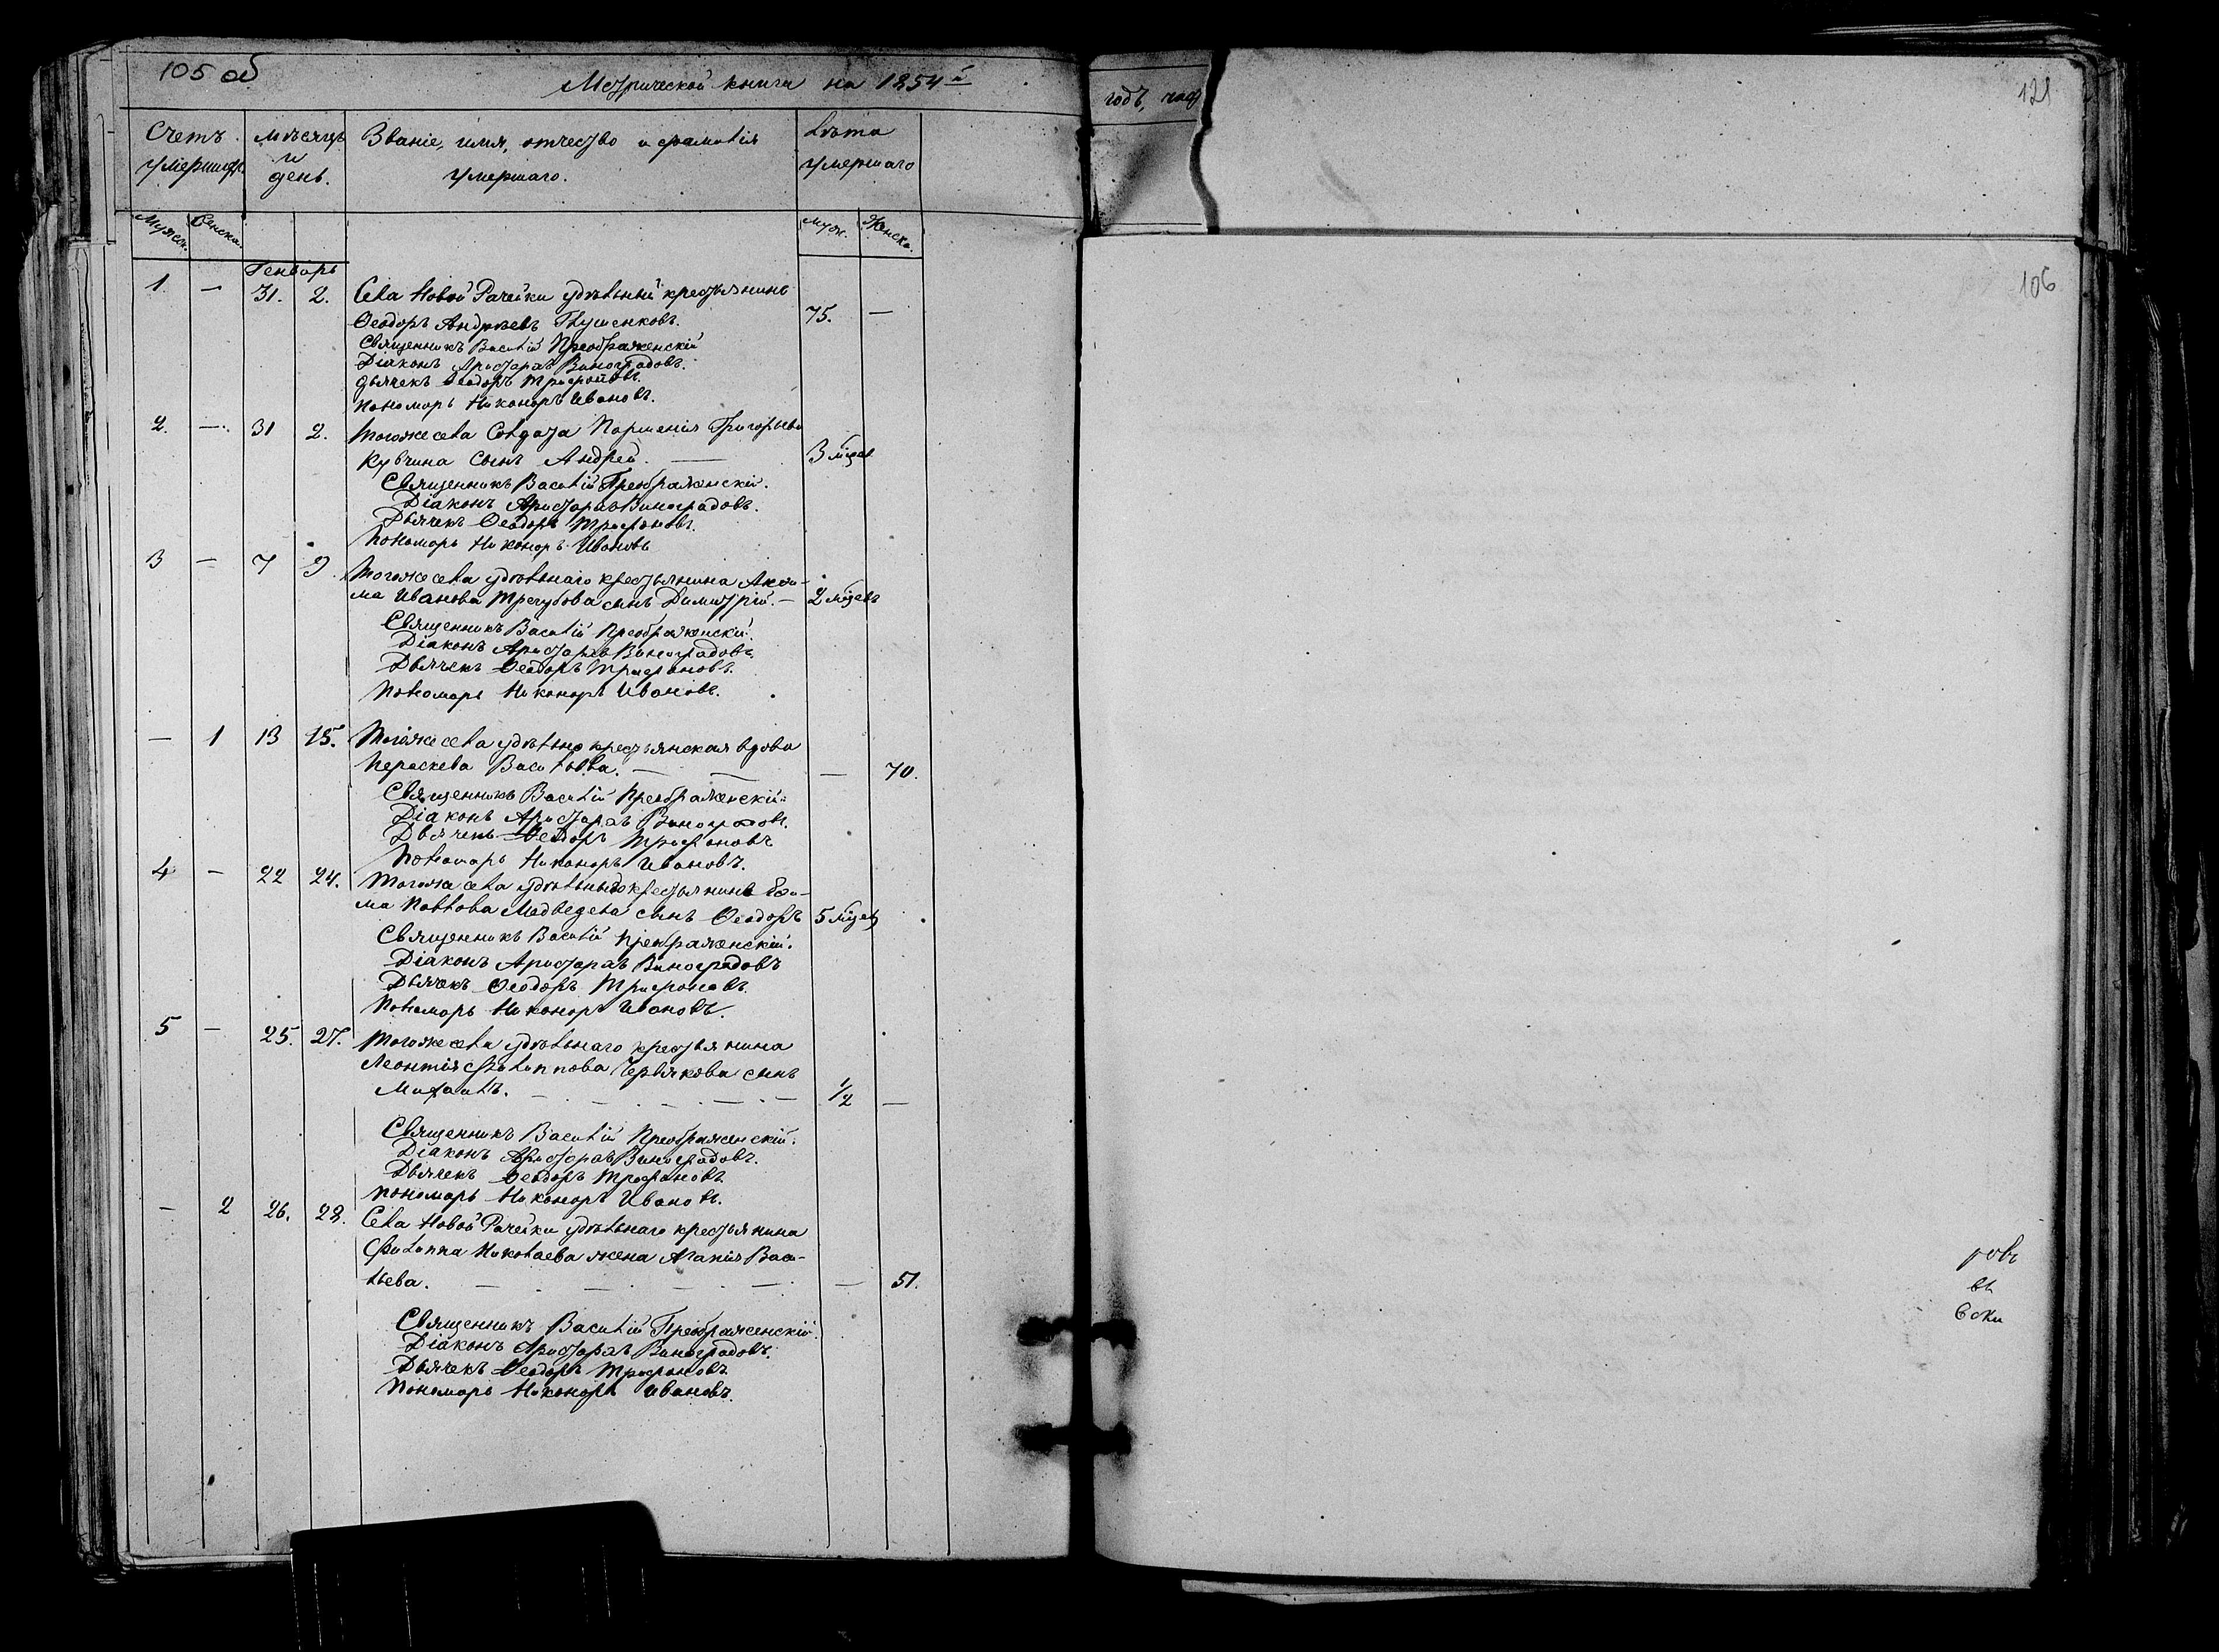 105 об
Метрической книги на 1854й
годъ, час
121
Счетъ умершихъ.
Мужск. Женска.
мѣсяцъ и день.
Званіе, имя, отчество и фамилія умершаго.
Лѣта умершаго
Муж. Женска.
106
Генварь
1 — 31. 2. Села Новой Рачейки удѣльный крестьянинъ
Ѳеодоръ Андреевъ Глушенковъ. 75. —
Священникъ Василій Преображенскій
Діаконъ Аристархъ Виноградовъ.
Дьячекъ Ѳеодоръ Трифоновъ.
Пономарь Никоноръ Ивановъ.
2. — 31 2. Тогоже села Солдата Парменія Григорьева
Кувчина сынъ Андрей. — 3 мѣсяц
Священникъ Василій Преображенскій.
Діаконъ Аристархъ Виноградовъ.
Дьячекъ Ѳеодоръ Трифоновъ.
Пономарь Никоноръ Ивановъ
3 — 7 9. Тогоже села удѣльнаго крестьянина Аки-
ма Иванова Трегубова сынъ Димитрій. — 2 мѣсец
Священникъ Василій Преображенскій.
Діаконъ Аристархъ Виноградовъ.
Дьячекъ Ѳеодоръ Трифоновъ.
Пономарь Никоноръ Ивановъ.
— 1 13 15. Тогоже села удѣльно крестьянская вдова
Параскева Васильева. — — — 70.
Священникъ Василій Преображенскій.
Діаконъ Аристархъ Виноградовъ.
Дьячекъ Ѳеодоръ Трифоновъ
Пономарь Никоноръ Ивановъ.
4 — 22 24. Тогоже села удѣльнаго крестьянина Ефи-
ма Павлова Медведева сынъ Ѳеодоръ 5 мѣсец
Священникъ Василій Преображенскій.
Діаконъ Аристархъ Виноградовъ
Дьячекъ Ѳеодоръ Трифоновъ.
Пономарь Никоноръ Ивановъ.
5 — 25. 27. Тогоже села удѣльнаго крестьянина
Леонтія Филиппова Червякова сынъ
Михаилъ. — — — — — 1/2 —
Священникъ Василій Преображенскій.
Діаконъ Аристархъ Виноградовъ.
Дьячекъ Ѳеодоръ Трифоновъ.
Пономарь Никоноръ Ивановъ.
— 2 26. 28. Села Новой Рачейки удѣльнаго крестьянина
Филиппа Николаева жена Агапія Васи-
льева. — — — — — — 51.
Священникъ Василій Преображенскій.
Діаконъ Аристархъ Виноградовъ.
Дьячекъ Ѳеодоръ Трифоновъ.
Пономарь Никоноръ Ивановъ.
ровъ
въ